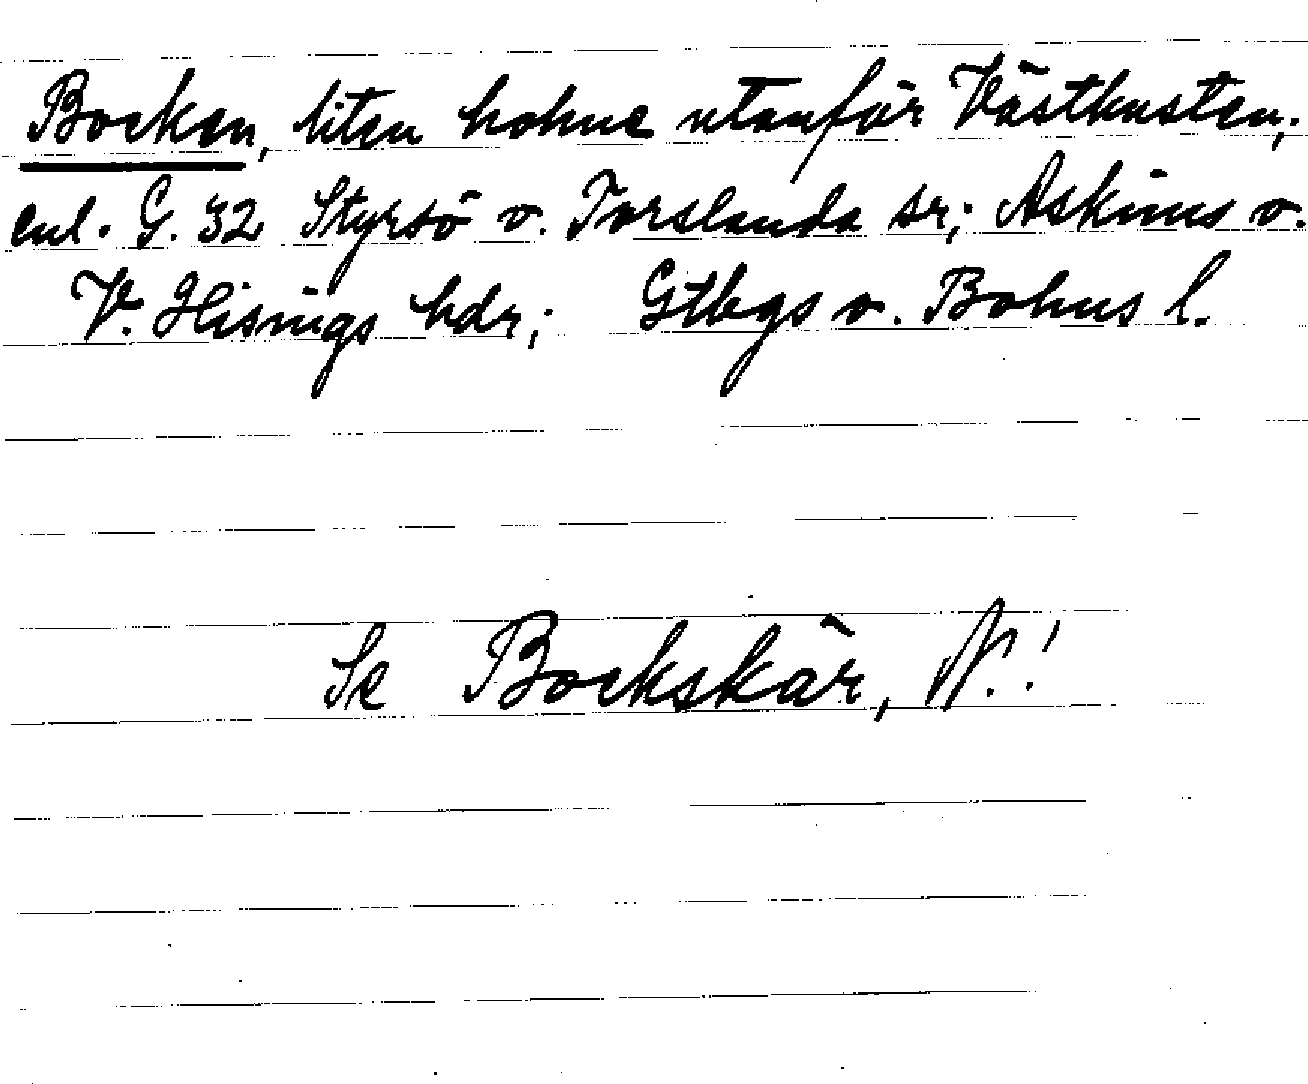 Bocken, liten holme utanför Västkusten;
enl. G. 32 Styrsö o. Torslanda sr; Askims o.
V. Hisings hdr; Gtbgs o. Bohus l.
Se Bockskär, N.!